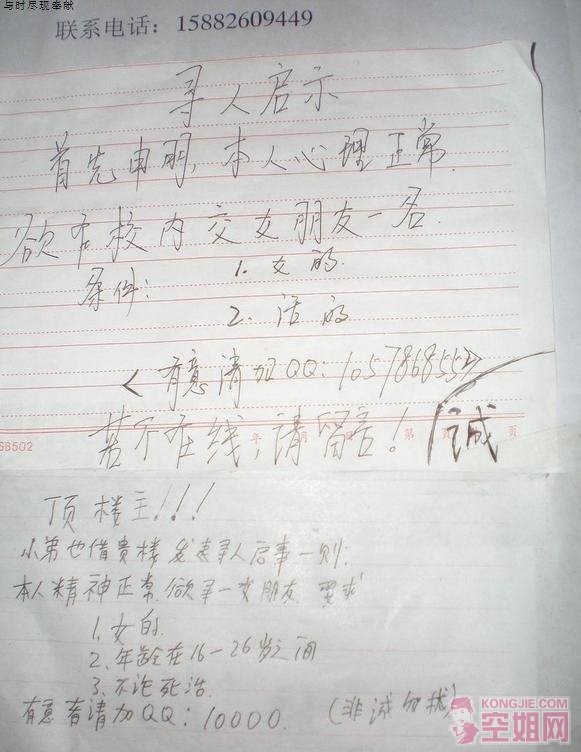 与时尽现奉献
联系电话：15882609449
寻人启示
首先申明，本人心理正常.
欲在校内交女朋友一名.
条件：1. 女的.
2. 活的
<有意请加QQ：1057868552>
若不在线，请留言！
诚
S8502 年 月 日 第 页 页
顶楼主！！！
小弟也借贵楼发表寻人启事一则：
本人精神正常.欲寻一女朋友.要求
1.女的.
2.年龄在16-26岁之间
3.不论死活.
有意者请加QQ：10000. （非诚勿扰）
KONGJIE.COM
空姐网